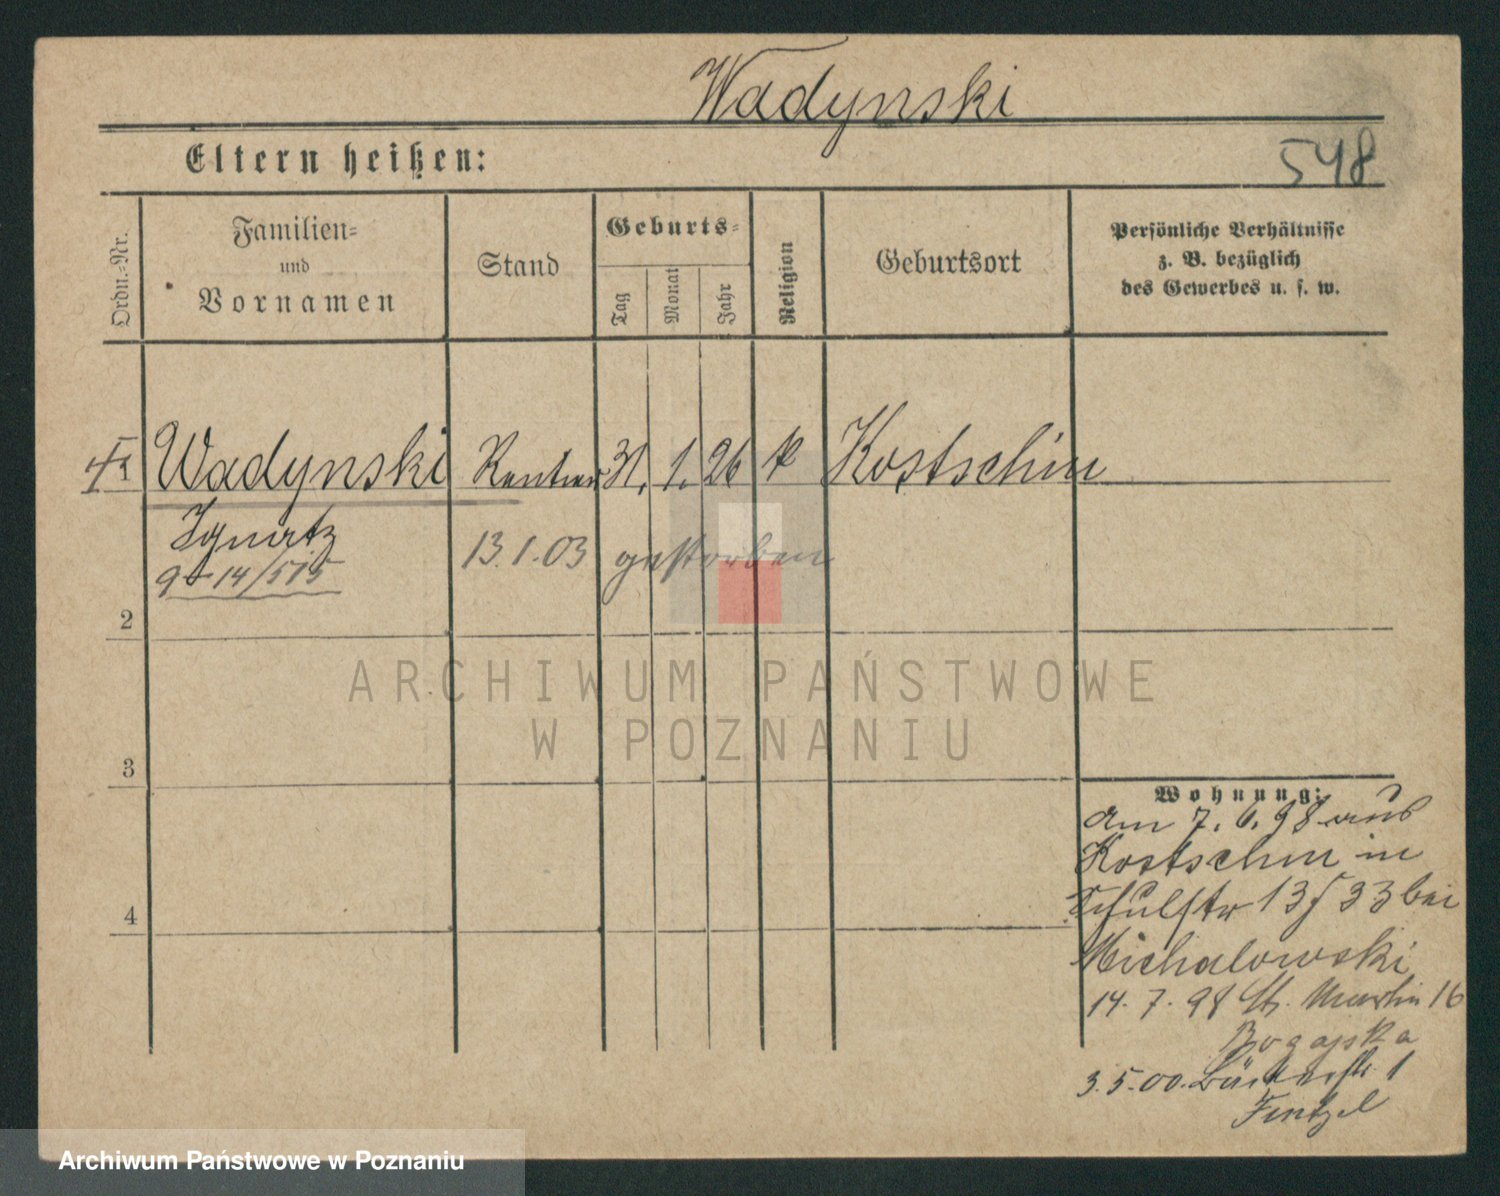 Wadynski
Eltern heißen:
548
Ordn.-Nr.
Familien-
und
Vornamen
Stand
Geburts-
Tag
Monat
Jahr
Religion
Geburtsort
Persönliche Verhältnisse
z. B. bezüglich
des Gewerbes u. s. w.
1
Wadynski Rentier 31. 1. 26 k Kostschin
Ignatz 13.1.03 gestorben
14/515
2
3
4
Wohnung:
am 7. 6. 98 aus
Kostschin in
Schulstr 13 33 bei
Michalowski
14. 7. 98 St. Martin 16
3.5.00. 1
ARCHIWUM PAŃSTWOWE
W POZNANIU
Archiwum Państwowe w Poznaniu